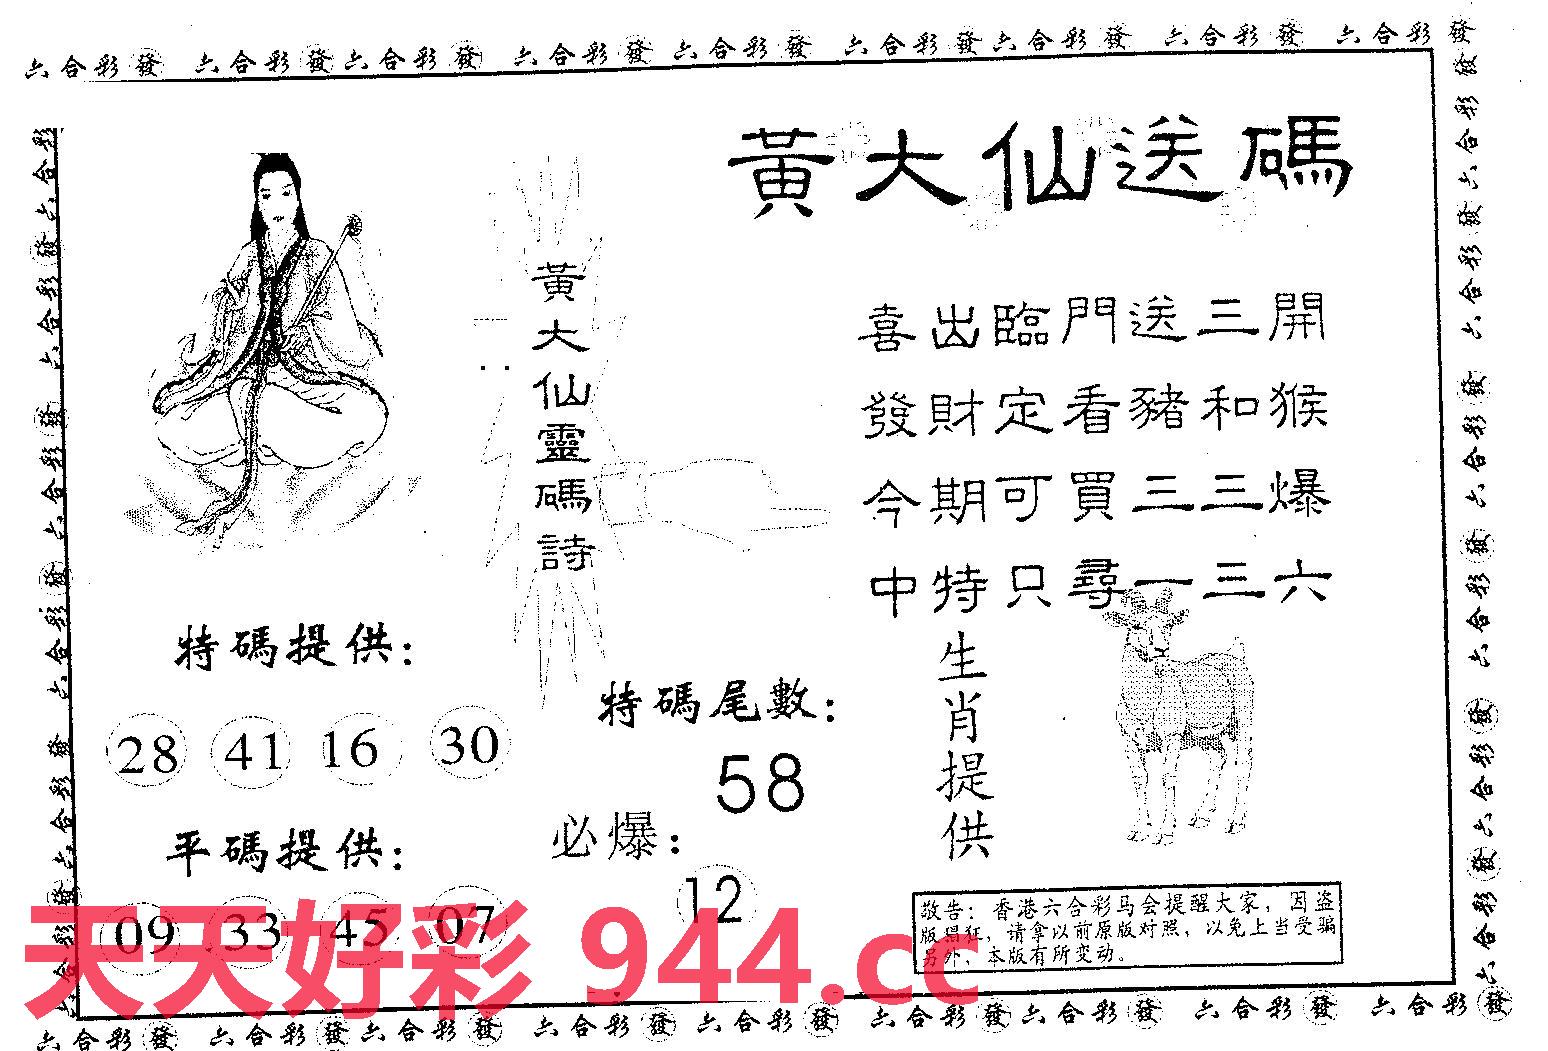 六合彩發 六合彩發 六合彩發 六合彩發 六合彩發 六合彩發 六合彩發 六合彩發 六合彩發
黃大仙送碼
黃大仙靈碼詩
喜出臨門送三開
發財定看豬和猴
今期可買三三爆
中特只尋一三六
特碼提供：
28 41 16 30
特碼尾數：
58
生肖提供
平碼提供：
09 33 45 07
必爆：
12
敬告：香港六合彩马会提醒大家，因盗
版猖狂，请拿以前原版对照，以免上当受骗
另外，本版有所变动。
天天好彩 944.cc
六合彩發 六合彩發 六合彩發 六合彩發 六合彩發 六合彩發 六合彩發 六合彩發 六合彩發